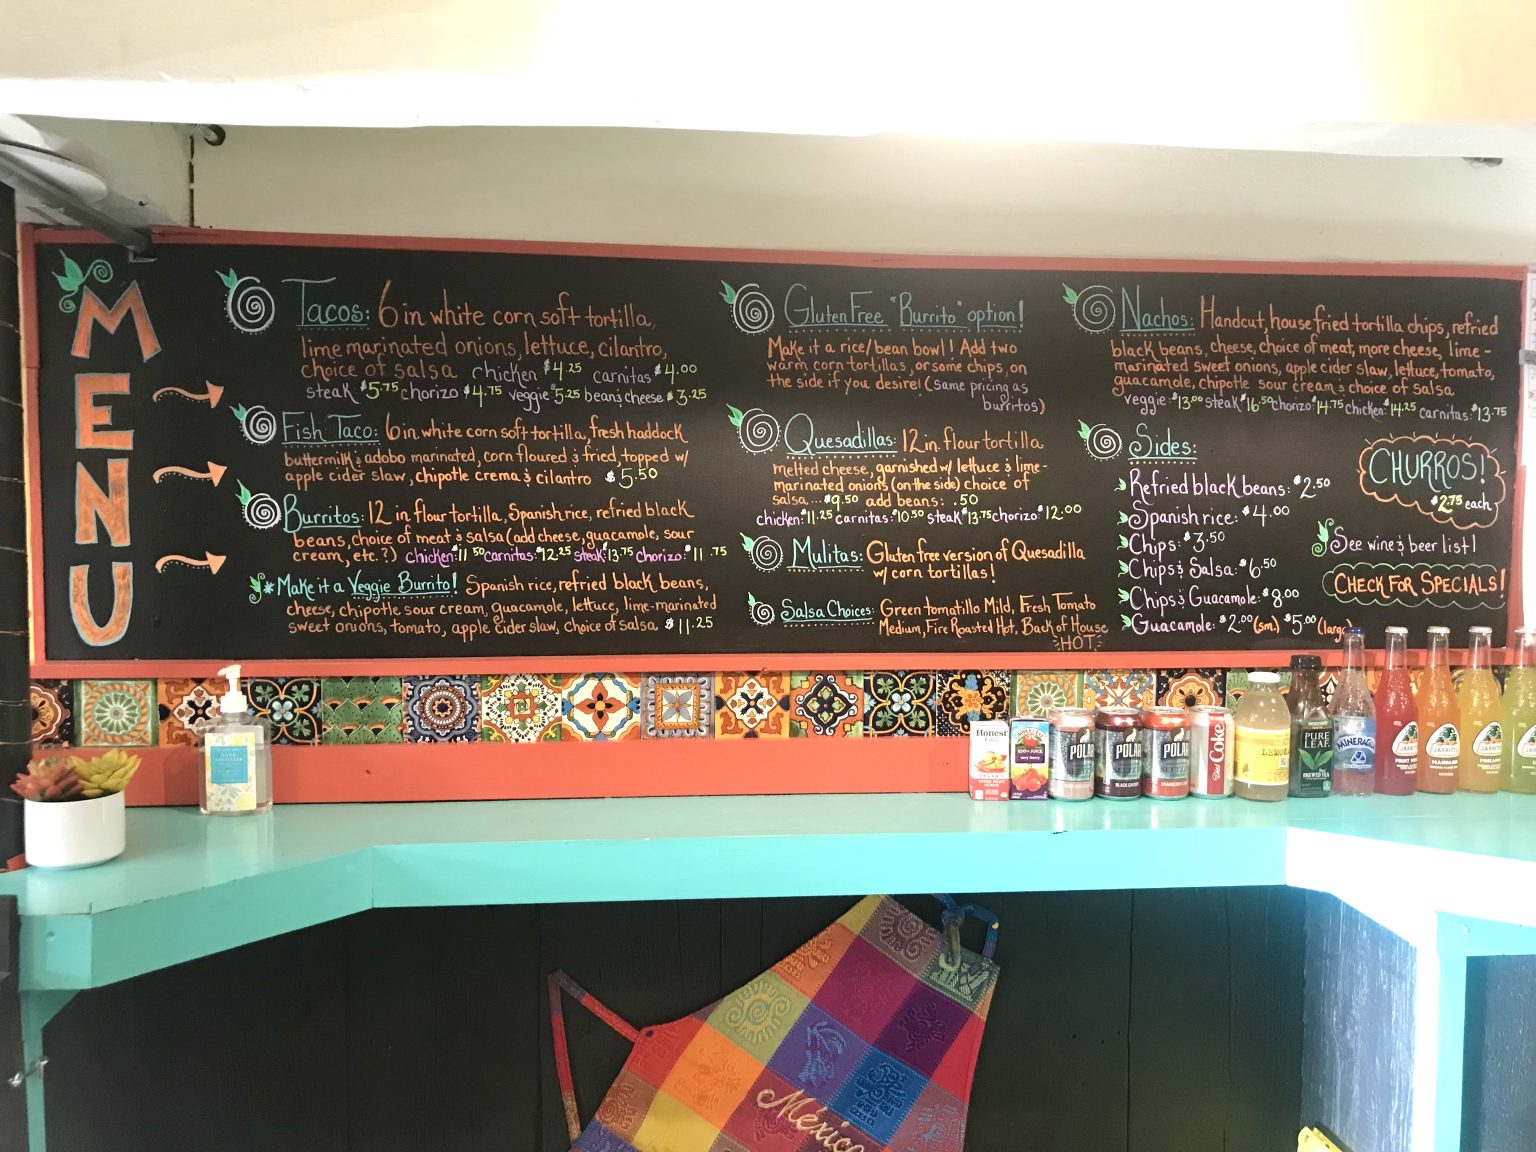 MENU
Tacos: 6 in white corn soft tortilla,
lime marinated onions, lettuce, cilantro,
choice of salsa chicken $4.25 carnitas $4.00
steak $5.75 chorizo $4.75 veggie $5.25 bean & cheese $3.25
Fish Taco: 6 in white corn soft tortilla, fresh haddock
buttermilk & adobo marinated, corn floured & fried, topped w/
apple cider slaw, chipotle crema & cilantro $5.50
Burritos: 12 in. flour tortilla, Spanish rice, refried black
beans, choice of meat & salsa (add cheese, guacamole, sour
cream, etc.?) chicken: $11.50 carnitas: $12.25 steak: $13.75 chorizo: $11.75
* Make it a Veggie Burrito! Spanish rice, refried black beans,
cheese, chipotle sour cream, guacamole, lettuce, lime-marinated
sweet onions, tomato, apple cider slaw, choice of salsa $11.25
Gluten Free "Burrito" option!
Make it a rice/bean bowl! Add two
warm corn tortillas, or some chips, on
the side if you desire! (same pricing as
burritos)
Quesadillas: 12 in. flour tortilla
melted cheese, garnished w/ lettuce & lime-
marinated onions (on the side) choice of
salsa... $9.50 add beans: .50
chicken: $11.25 carnitas: $10.50 steak $13.75 chorizo: $12.00
Mulitas: Gluten free version of Quesadilla
w/ corn tortillas!
Salsa Choices: Green tomatillo Mild, Fresh Tomato
Medium, Fire Roasted Hot, Back of House
HOT
Nachos: Handcut, house fried tortilla chips, refried
black beans, cheese, choice of meat, more cheese, lime-
marinated sweet onions, apple cider slaw, lettuce, tomato,
guacamole, chipotle sour cream & choice of salsa
veggie: $13.00 steak $16.50 chorizo: $14.75 chicken: $14.25 carnitas: $13.75
Sides:
Refried black beans: $2.50
Spanish rice: $4.00
Chips: $3.50
Chips & Salsa: $6.50
Chips & Guacamole: $8.00
Guacamole: $2.00 (sm.) $5.00 (larg
CHURROS!
$2.75 each
See wine & beer list!
CHECK FOR SPECIALS!
Honest
KIDS
ORGANIC
SUPER FRUIT
PUNCH
100% JUICE
very berry
POLAR
POLAR
BLACK CHERRY
POLAR
Diet Coke
PURE
LEAF
BREWED TEA
MINERAG
JARRITOS
JARRITOS
MANDARIN
JARRITOS
México